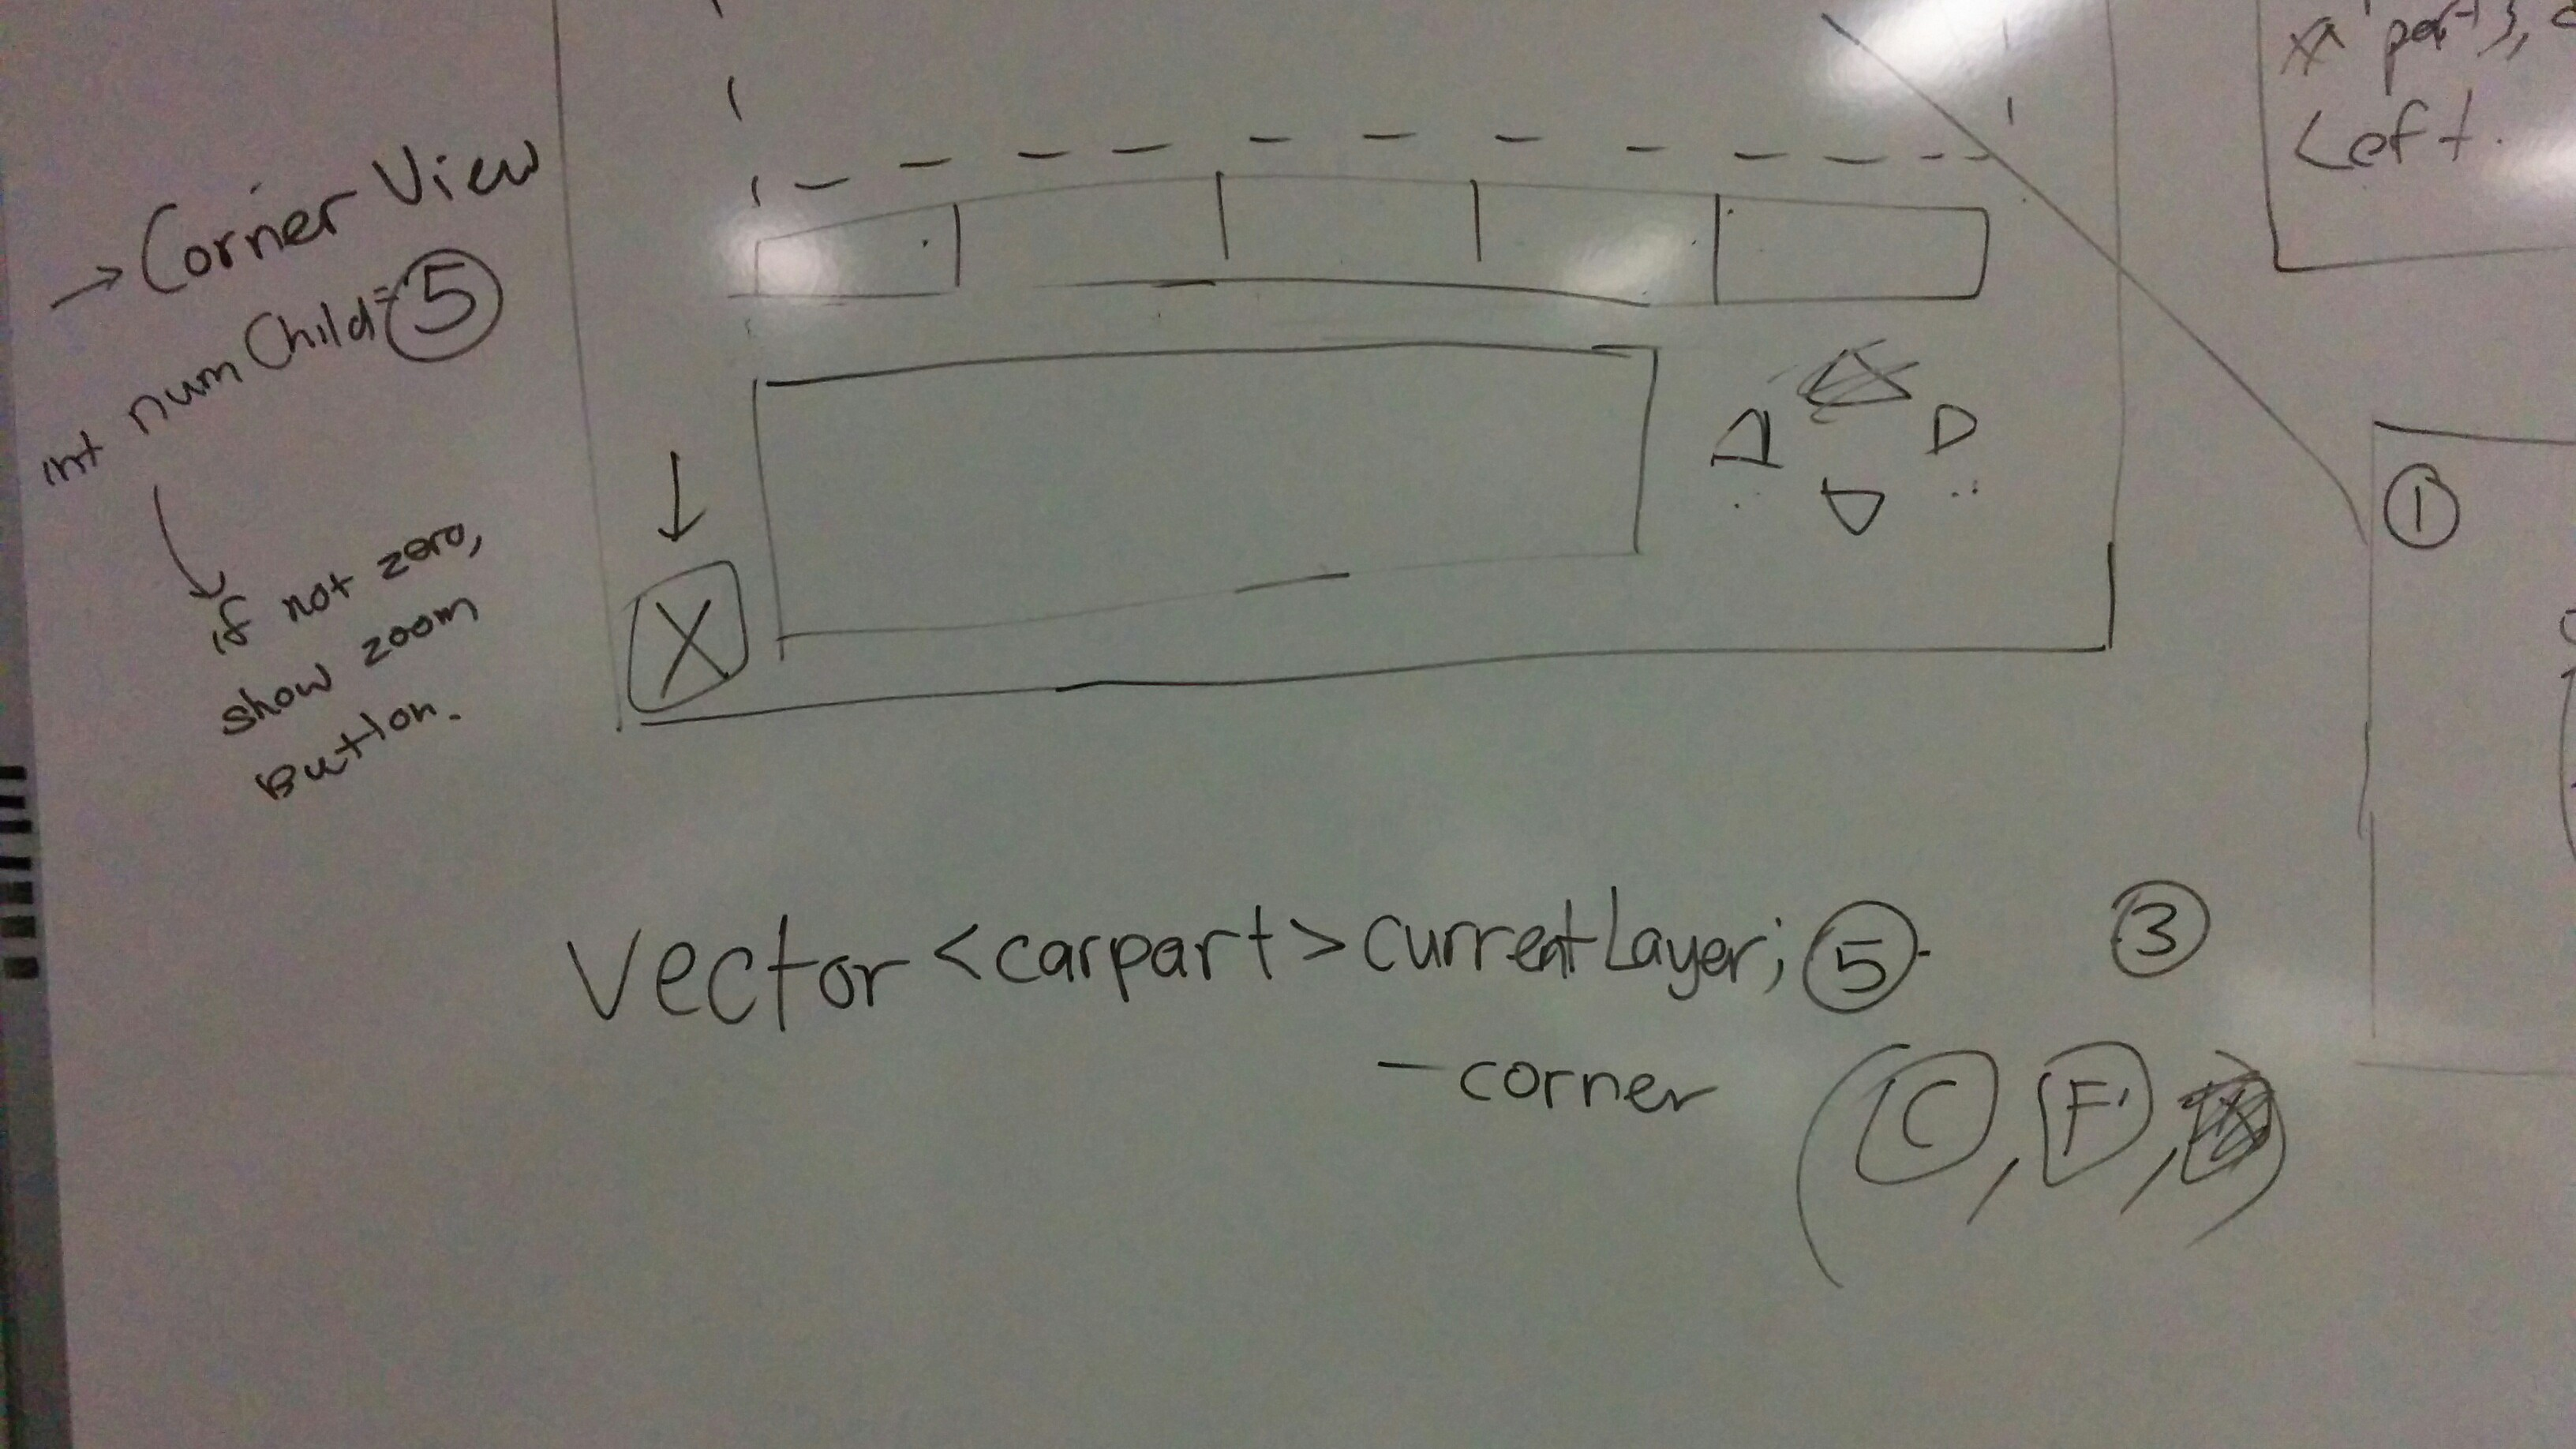 → Corner View
int numChild=5
if not zero,
show zoom
Button.
X
Left.
1
vector <carpart> currentLayer; 5
3
- corner
(C, F,